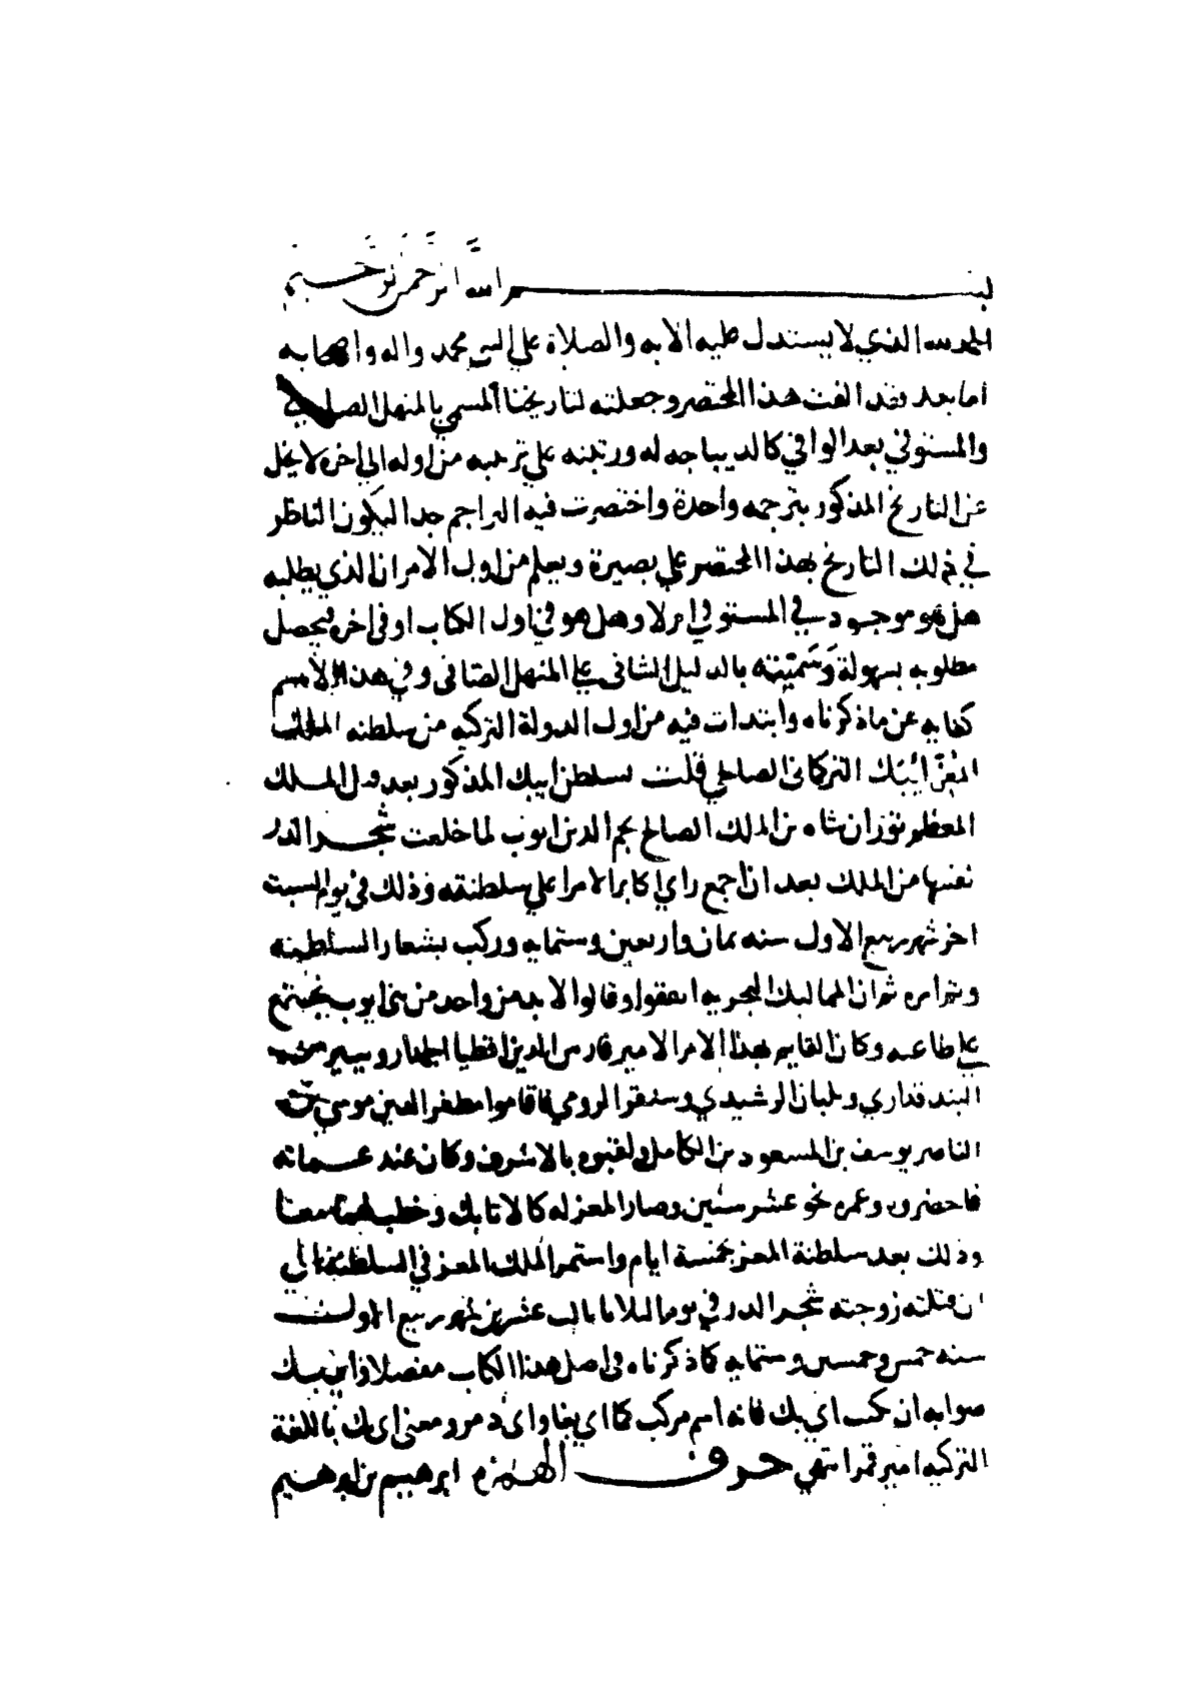 بسم الله الرحمن الرحيم
الحمد لله الذي لا يستدل عليه الا به والصلاة علي النبي محمد واله واصحابه
اما بعد فقد الفت هذا المختصر وجعلته لتاريخنا المسمي بالمنهل الصافي
والمستوفي بعد الوافي كالديباجه له ورتبته علي ترتيبه من اوله الي اخره لا يخل
عن التاريخ المذكور بترجمه واحدة واختصرت فيه التراجم جدا ليكون الناظر
في ذلك التاريخ بهذا المختصر علي بصيرة ويعلم من اول الامر ان الذي يطلبه
هل هو موجود في المستوفي ام لا وهل هو في اول الكتاب او في اخره فيحصل
مطلوبه بسهولة وسميته بالدليل الشافي علي المنهل الصافي وفي هذا الاسم
كفايه عن ما ذكرناه وابتدات فيه من اول الدولة التركيه من سلطنه الملك
المعز ايبك التركماني الصالحي قلت تسلطن ايبك المذكور بعد قتل الملك
المعظم توران شاه بن الملك الصالح نجم الدين ايوب لما خلعت شجر الدر
نفسها من الملك بعد ان اجمع راي اكابر الامرا علي سلطنته وذلك في يوم السبت
اخر شهر ربيع الاول سنه ثمان واربعين وستمايه وركب بشعار السلطنه
وتم امره ثم ان المماليك البحريه اتفقوا وقالوا لا بد من واحد من بني ايوب يجتمع
علي طاعته وكان القايم بهذا الامر الامير فارس الدين اقطيا الجمدار وبيبرس
البندقداري وبلبان الرشيدي وسنقر الرومي فاقاموا مظفر الدين موسي بن
الناصر يوسف بن المسعود بن الكامل ولقبوه بالاشرف وكان عند عماته
فاحضروه وعمره نحو عشر سنين وصار المعز له كالاتابك وخطب لهما معا
وذلك بعد سلطنة المعز بخمسة ايام واستمر الملك المعز في السلطنة الي
ان قتلته زوجته شجر الدر في يوم الثلاثا ثالث عشرين شهر ربيع الاول
سنه خمس وخمسين وستمايه كما ذكرناه في اصل هذا الكتاب مفصلا وايبك
صوابه ان يكتب اي بك فانه اسم مركب كما اي بغا واي دمر ومعني اي بك باللغة
التركيه امير قمر انتهي حرف الهمزة ابرهيم بن ابرهيم